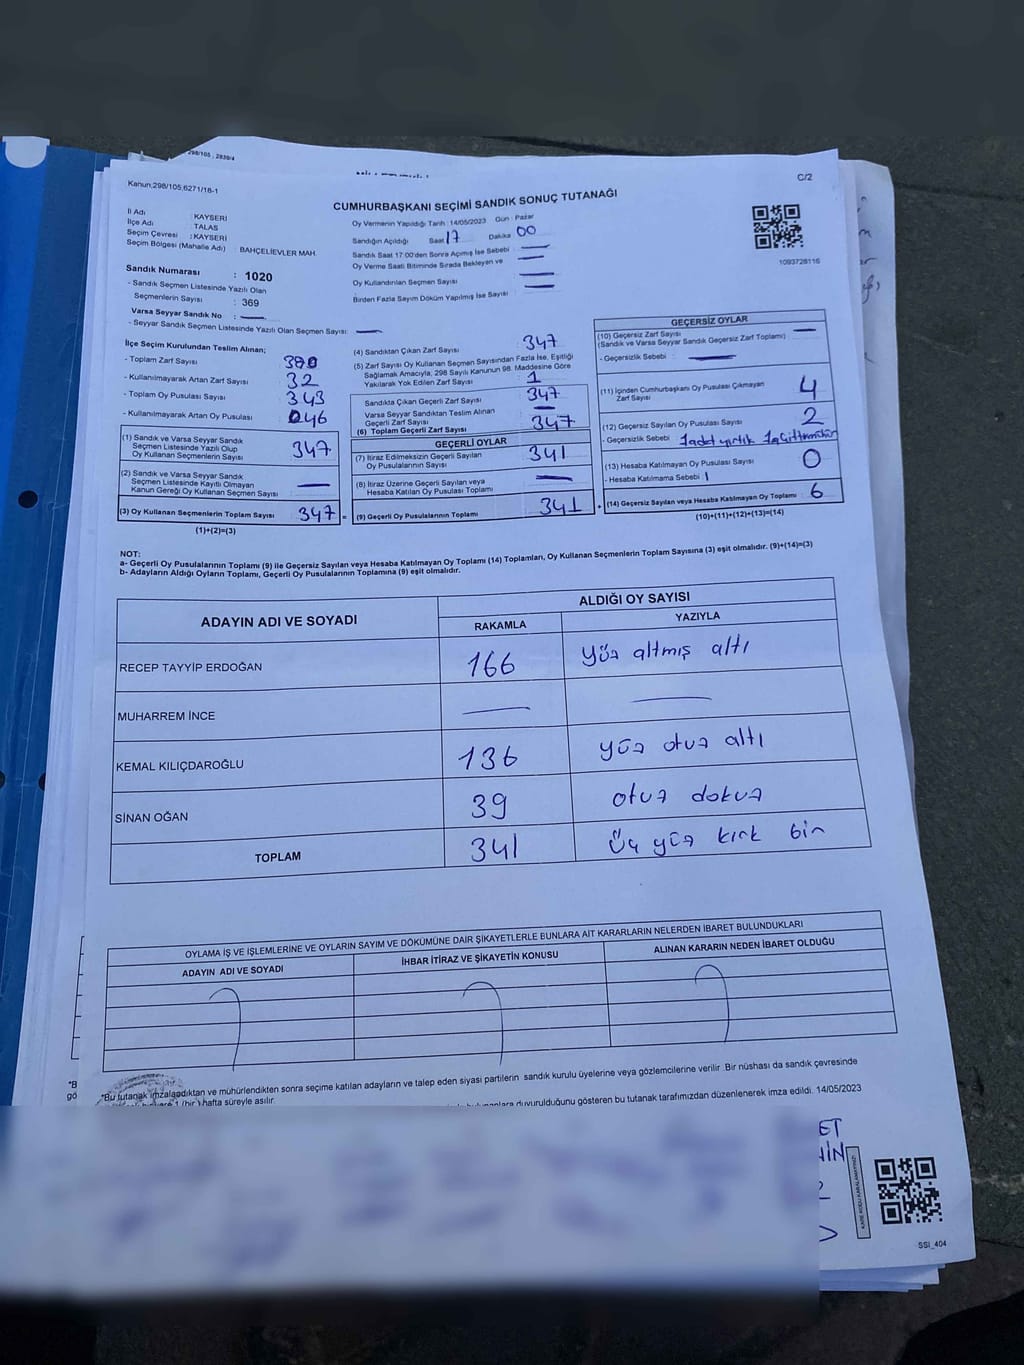 298/105, 2839/4
Kanun;298/105,6271/16-1
C/2
CUMHURBAŞKANI SEÇİMİ SANDIK SONUÇ TUTANAĞI
İl Adı : KAYSERİ
İlçe Adı : TALAS
Seçim Çevresi : KAYSERİ
Seçim Bölgesi (Mahalle Adı) : BAHÇELİEVLER MAH.
Oy Vermenin Yapıldığı Tarih : 14/05/2023 Gün : Pazar
Sandığın Açıldığı Saat 17 Dakika 00
Sandık Saat 17:00'den Sonra Açımış İse Sebebi
Oy Verme Saati Bitiminde Sırada Bekleyen ve
Oy Kullandırılan Seçmen Sayısı
Birden Fazla Sayım Döküm Yapılmış İse Sayısı :
1093728116
Sandık Numarası : 1020
- Sandık Seçmen Listesinde Yazılı Olan
Seçmenlerin Sayısı : 369
Varsa Seyyar Sandık No :
- Seyyar Sandık Seçmen Listesinde Yazılı Olan Seçmen Sayısı:
İlçe Seçim Kurulundan Teslim Alınan;
- Toplam Zarf Sayısı 380
- Kullanılmayarak Artan Zarf Sayısı 32
- Toplam Oy Pusulası Sayısı 343
- Kullanılmayarak Artan Oy Pusulası 046
(1) Sandık ve Varsa Seyyar Sandık
Seçmen Listesinde Yazılı Olup
Oy Kullanan Seçmenlerin Sayısı 347
(2) Sandık ve Varsa Seyyar Sandık
Seçmen Listesinde Kayıtlı Olmayan
Kanun Gereği Oy Kullanan Seçmen Sayısı
(3) Oy Kullanan Seçmenlerin Toplam Sayısı 347 =
(1)+(2)=(3)
(4) Sandıktan Çıkan Zarf Sayısı 347
(5) Zarf Sayısı Oy Kullanan Seçmen Sayısından Fazla İse, Eşitliği
Sağlamak Amacıyla, 298 Sayılı Kanunun 98. Maddesine Göre
Yakılarak Yok Edilen Zarf Sayısı 1
Sandıkta Çıkan Geçerli Zarf Sayısı 347
Varsa Seyyar Sandıktan Teslim Alınan
Geçerli Zarf Sayısı
(6) Toplam Geçerli Zarf Sayısı 347
GEÇERLİ OYLAR
(7) İtiraz Edilmeksizin Geçerli Sayılan
Oy Pusulalarının Sayısı 341
(8) İtiraz Üzerine Geçerli Sayılan veya
Hesaba Katılan Oy Pusulası Toplamı
(9) Geçerli Oy Pusulalarının Toplamı 341 +
GEÇERSİZ OYLAR
(10) Geçersiz Zarf Sayısı
(Sandık ve Varsa Seyyar Sandık Geçersiz Zarf Toplamı)
- Geçersizlik Sebebi :
(11) İçinden Cumhurbaşkanı Oy Pusulası Çıkmayan
Zarf Sayısı 4
(12) Geçersiz Sayılan Oy Pusulası Sayısı 2
- Geçersizlik Sebebi : 1 adet yırtık
(13) Hesaba Katılmayan Oy Pusulası Sayısı 0
- Hesaba Katılmama Sebebi
(14) Geçersiz Sayılan veya Hesaba Katılmayan Oy Toplamı 6
(10)+(11)+(12)+(13)=(14)
NOT:
a- Geçerli Oy Pusulalarının Toplamı (9) ile Geçersiz Sayılan veya Hesaba Katılmayan Oy Toplamı (14) Toplamları, Oy Kullanan Seçmenlerin Toplam Sayısına (3) eşit olmalıdır. (9)+(14)=(3)
b- Adayların Aldığı Oyların Toplamı, Geçerli Oy Pusulalarının Toplamına (9) eşit olmalıdır.
ADAYIN ADI VE SOYADI ALDIĞI OY SAYISI
RAKAMLA YAZIYLA
RECEP TAYYİP ERDOĞAN 166 yüz altmış altı
MUHARREM İNCE
KEMAL KILIÇDAROĞLU 136 yüz otuz altı
SİNAN OĞAN 39 otuz dokuz
TOPLAM 341 üç yüz kırk bir
OYLAMA İŞ VE İŞLEMLERİNE VE OYLARIN SAYIM VE DÖKÜMÜNE DAİR ŞİKAYETLERLE BUNLARA AİT KARARLARIN NELERDEN İBARET BULUNDUKLARI
ADAYIN ADI VE SOYADI İHBAR İTİRAZ VE ŞİKAYETİN KONUSU ALINAN KARARIN NEDEN İBARET OLDUĞU
*Bu tutanak imzalandıktan ve mühürlendikten sonra seçime katılan adayların ve talep eden siyasi partilerin sandık kurulu üyelerine veya gözlemcilerine verilir. Bir nüshası da sandık çevresinde
1 (bir) hafta süreyle asılır.
duyurulduğunu gösteren bu tutanak tarafımızdan düzenlenerek imza edildi. 14/05/2023
SSI_404